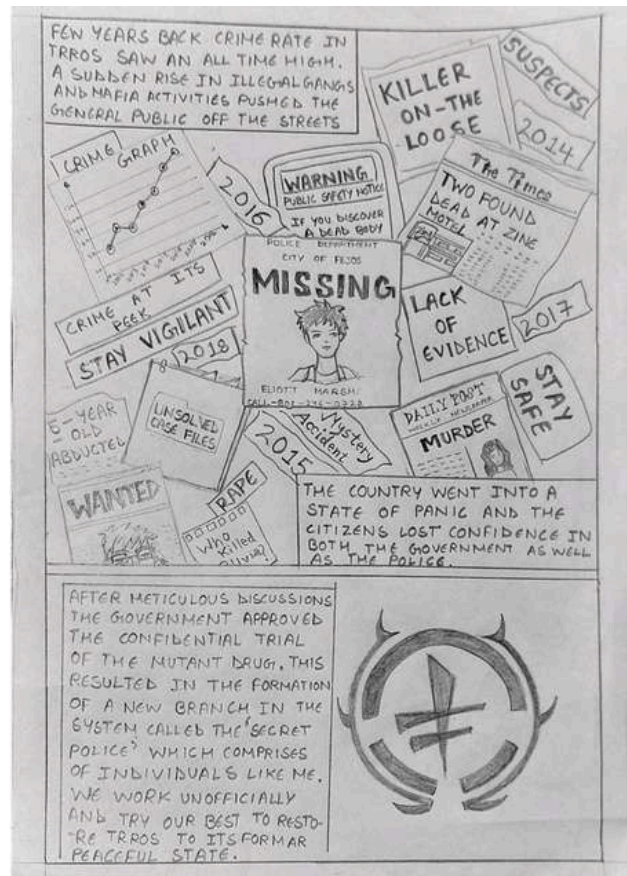 FEW YEARS BACK CRIME RATE IN
TRROS SAW AN ALL TIME HIGH.
A SUDDEN RISE IN ILLEGAL GANGS
AND MAFIA ACTIVITIES PUSHED THE
GENERAL PUBLIC OFF THE STREETS
KILLER
ON-THE
LOOSE
SUSPECTS
2014
CRIME GRAPH
2016
WARNING
PUBLIC SAFETY NOTICE
IF YOU DISCOVER
A DEAD BODY
The Times
TWO FOUND
DEAD AT ZINE
MOTEL
CRIME AT ITS
PEEK
STAY VIGILANT
2018
POLICE DEPARTMENT
CITY OF
MISSING
ELIOTT
LACK
OF
EVIDENCE
2017
STAY
SAFE
5-YEAR
OLD
ABDUCTED
UNSOLVED
CASE FILES
Mystery
Accident
2015
DAILY POST
MURDER
WANTED
RAPE
Who
Killed
THE COUNTRY WENT INTO A
STATE OF PANIC AND THE
CITIZENS LOST CONFIDENCE IN
BOTH THE GOVERNMENT AS WELL
AS THE POLICE.
AFTER METICULOUS DISCUSSIONS
THE GOVERNMENT APPROVED
THE CONFIDENTIAL TRIAL
OF THE MUTANT DRUG. THIS
RESULTED IN THE FORMATION
OF A NEW BRANCH IN THE
SYSTEM CALLED THE 'SECRET
POLICE' WHICH COMPRISES
OF INDIVIDUALS LIKE ME.
WE WORK UNOFFICIALLY
AND TRY OUR BEST TO RESTO-
-RE TRROS TO ITS FORMAR
PEACEFUL STATE.